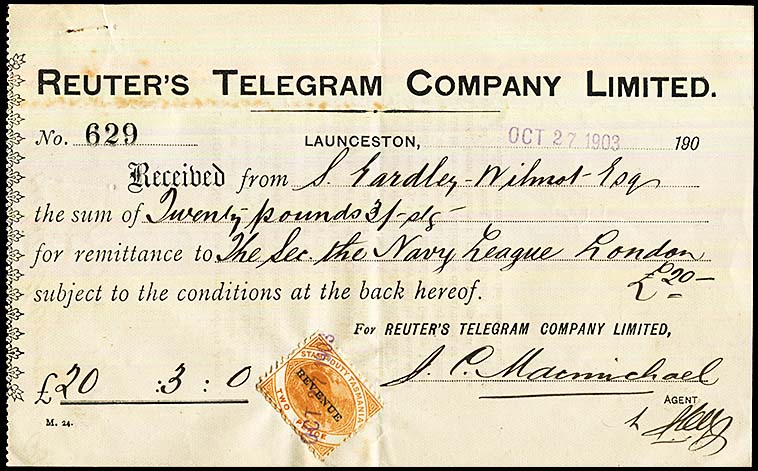 REUTER'S TELEGRAM COMPANY LIMITED.
No. 629 LAUNCESTON, OCT 27 1903 190
Received from S. Eardley-Wilmot Esq
the sum of Twenty pounds 3/- stg
for remittance to The Sec. the Navy League London
subject to the conditions at the back hereof. £20-
For REUTER'S TELEGRAM COMPANY LIMITED,
J. C. Macmichael
£20 : 3 : 0
AGENT
M. 24.
STAMP DUTY TASMANIA
REVENUE
TWO PENCE